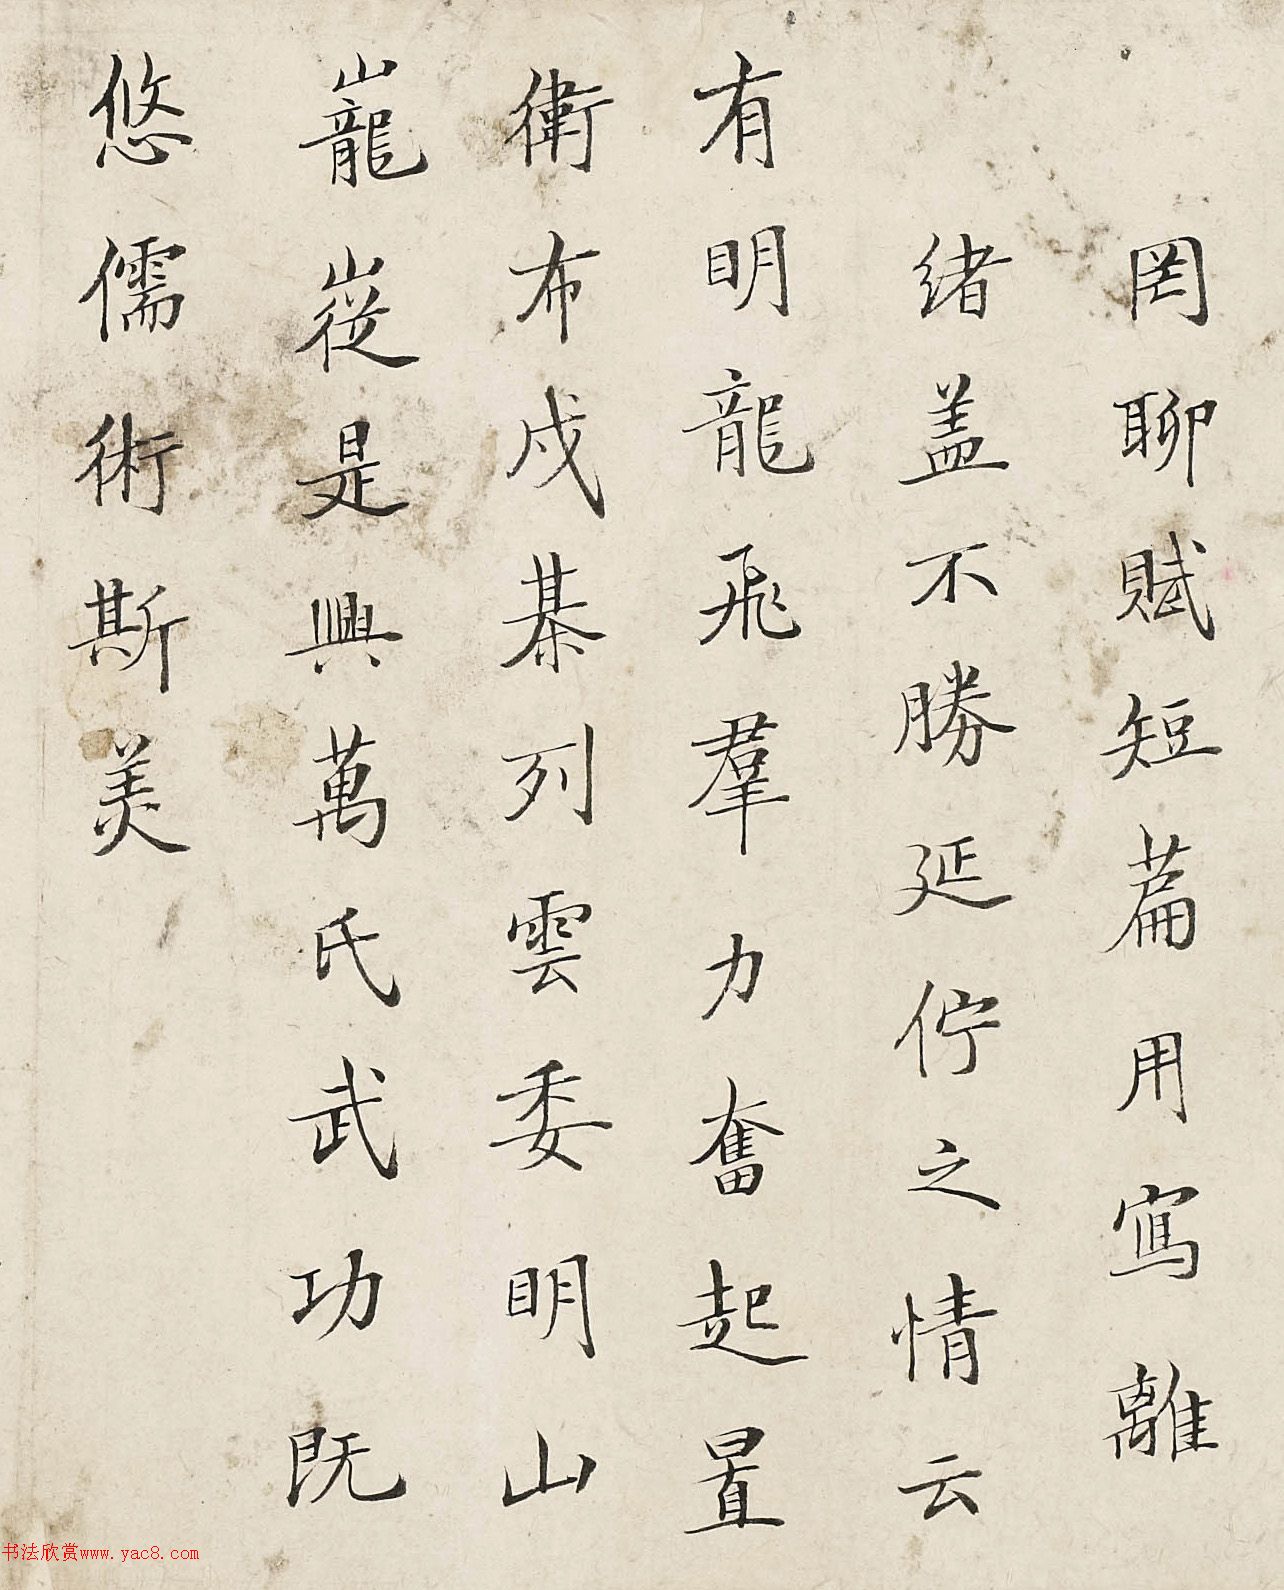 罔聊賦短萹用寫離
緒盖不勝延佇之情云
有明龍飛羣力奮起置
衛布戍棊列雲委明山
巃嵸是興萬氏武功既
悠儒術斯美
书法欣赏www.yac8.com